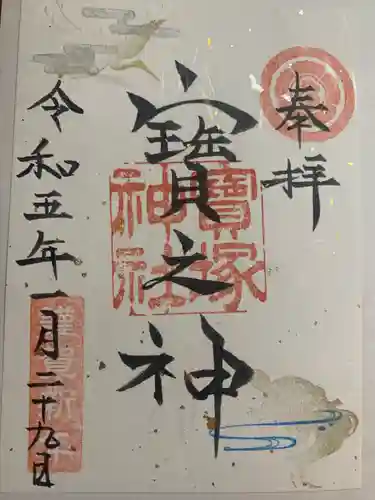 奉拝
寶之神
寶塚神社
令和五年一月二十九日
謹賀新年